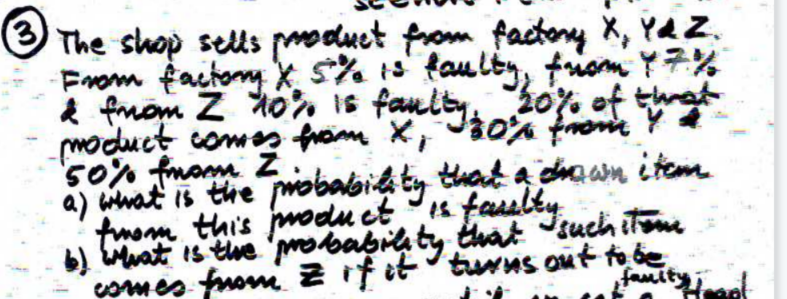 3 The shop sells product from factory X, Y & Z.
From factory X 5% is faulty, from Y 7%
& from Z 10% is faulty. 20% of that
product comes from X, 30% from Y &
50% from Z.
a) what is the probability that a drawn item
from this product is faulty
b) What is the probability that such item
comes from Z if it turns out to be
faulty.